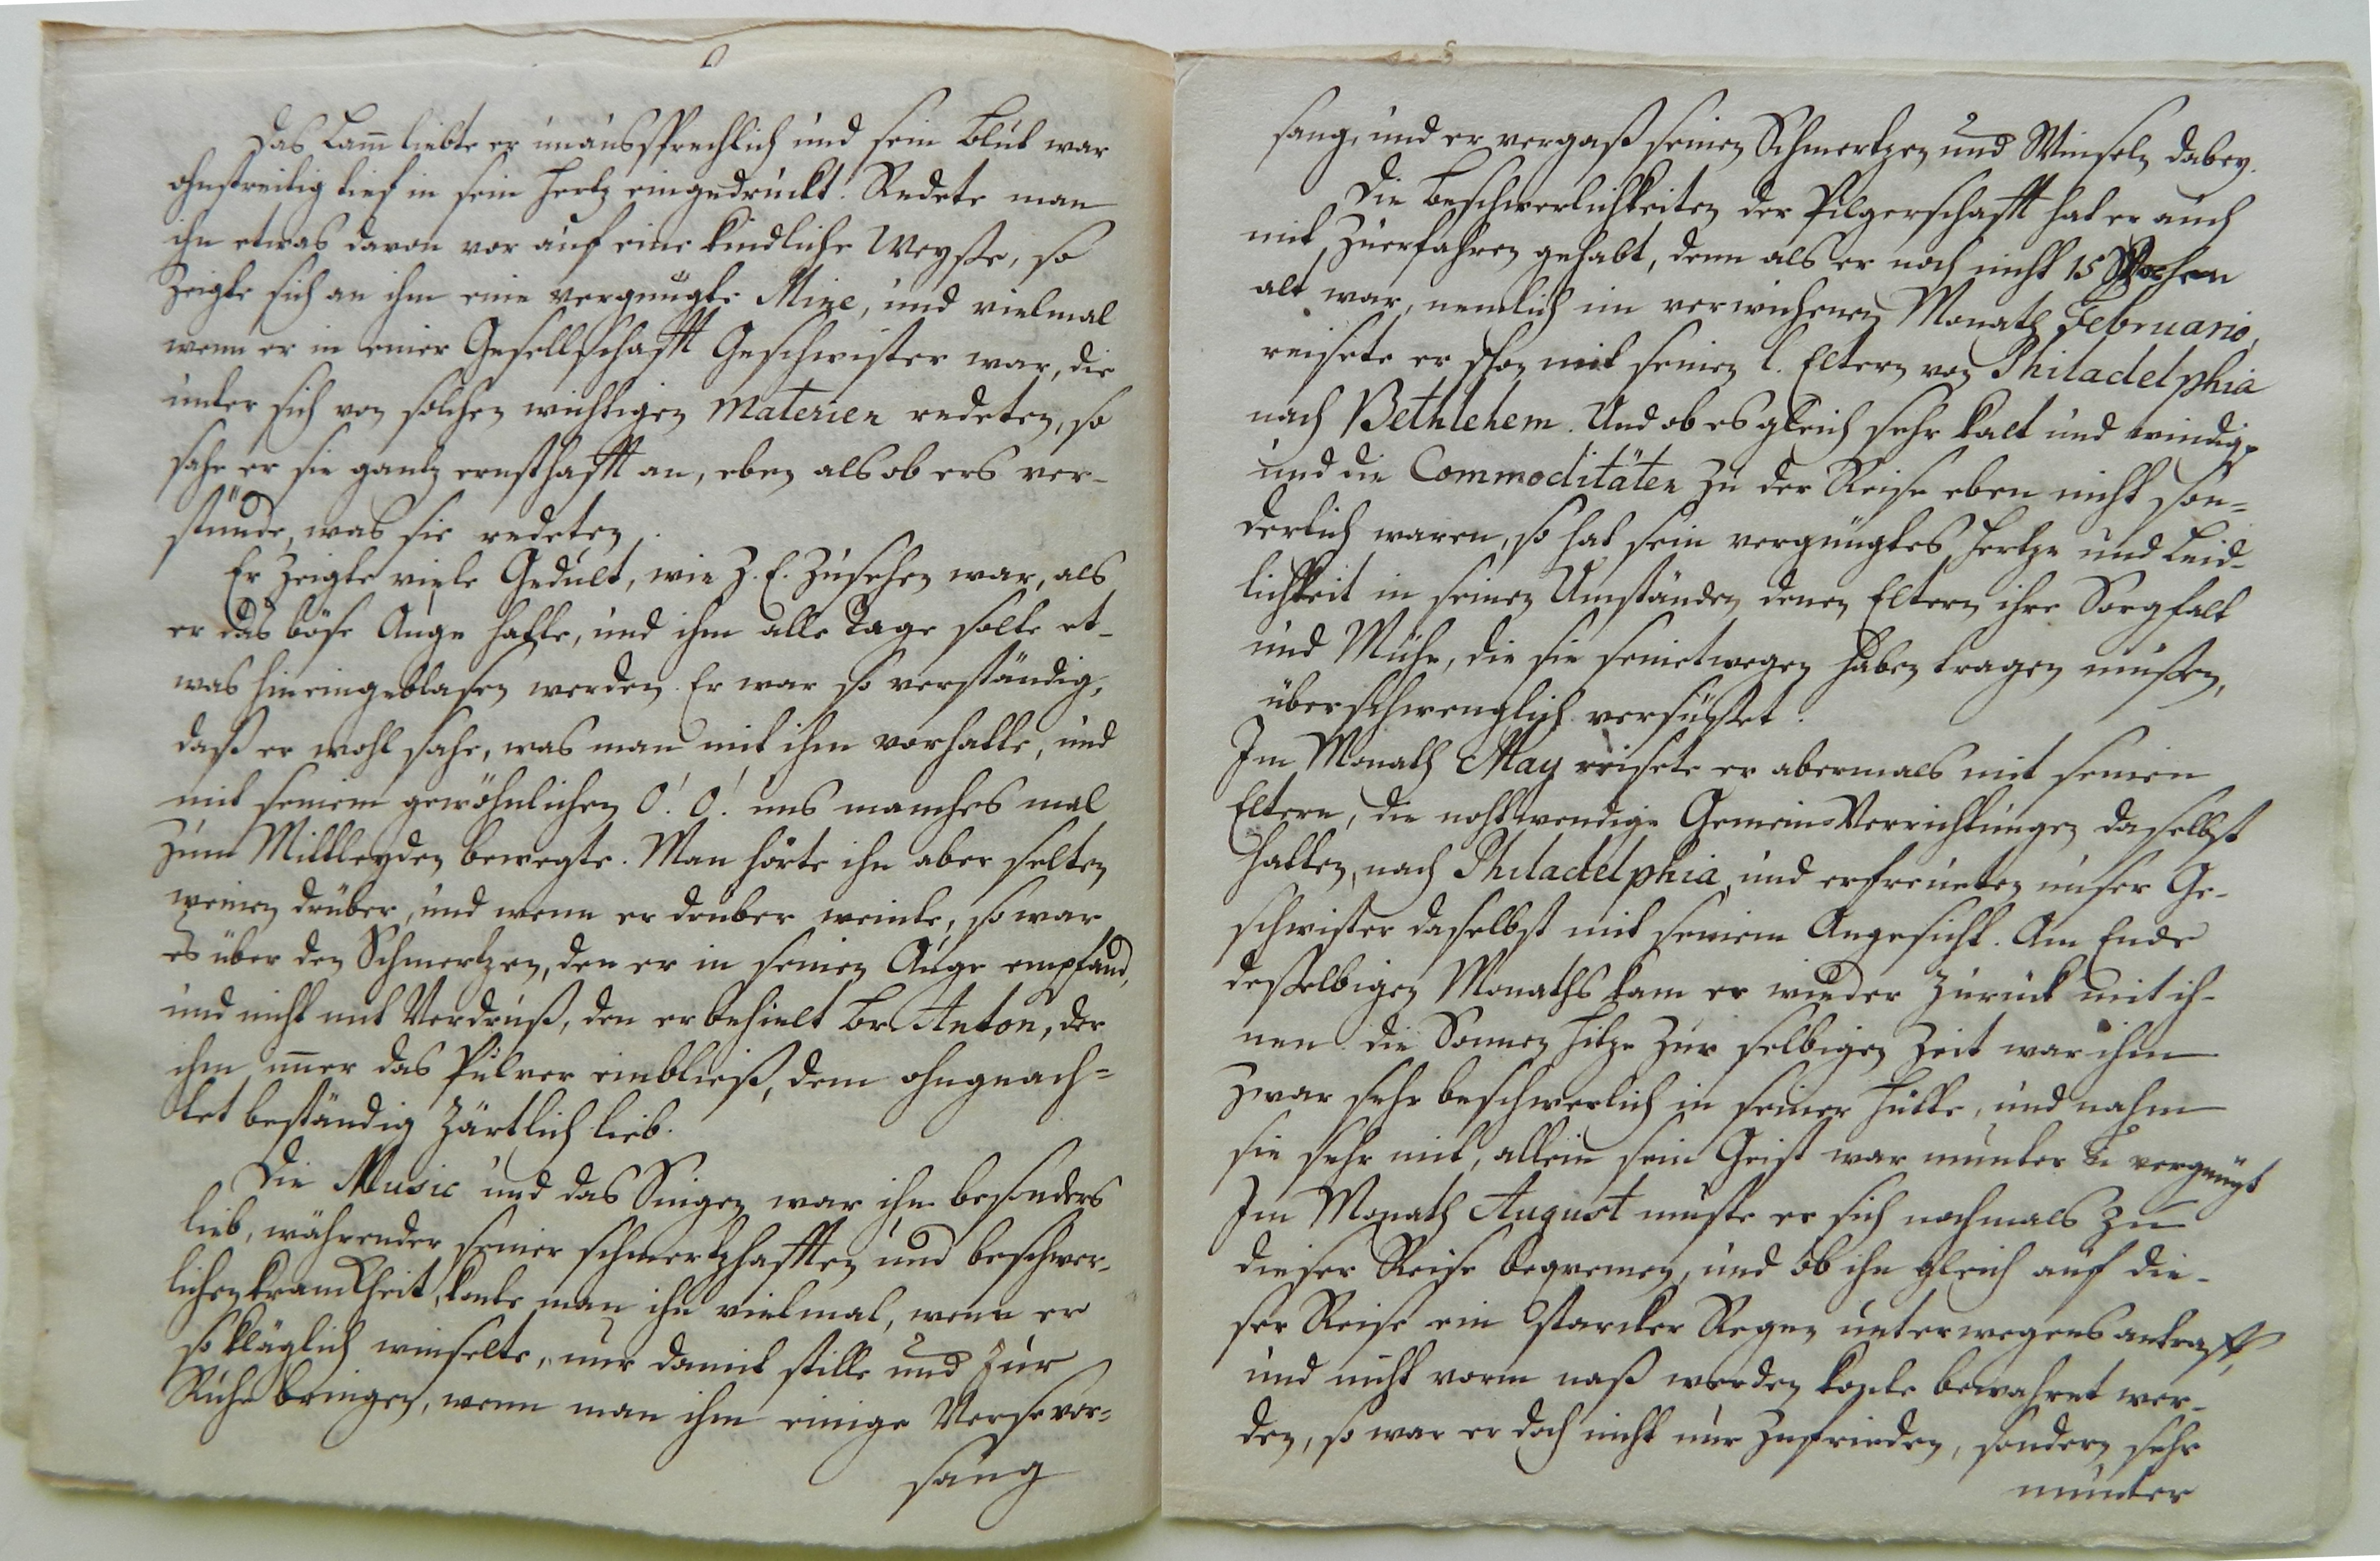 Das Lam̄ liebte er unaussprechlich und sein Blut war
ohnstreitig tief in sein Hertz eingedruckt. Redete man
ihn etwas davon vor auf eine kindliche Weysse, so
zeigte sich an ihm eine vergnügte Mine, und vielmal
wenn er in einer Gesellschafft Geschwister war, die
unter sich von solchen wichtigen Materien redeten, so
sahe er sie gantz ernsthafft an, eben als ob ers ver-
stünde, was sie redeten.
Er zeigte viele Gedult, wie z. E. zusehen war, als
er das böse Auge hatte, und ihm alle Tage solte et-
was hineingeblasen werden. Er war so verständig,
daß er wohl sahe, was man mit ihm vorhatte, und
mit seinem gewöhnlichen O! O! uns manches mal
zum Mittleyden bewegte. Man hörte ihn aber selten
weinen drüber, und wenn er drüber weinte, so war
es über den Schmertzen, den er in seinen Auge empfand,
und nicht mit Verdruß, den er behielt Br. Anton, der
ihm im̄er das Pulver einbließ, dem ohngeach=
tet beständig zärtlich lieb.
Die Music und das Singen war ihm besonders
lieb, währender seiner schmertzhafften und beschwer-
lichen Kranckheit, konte man ihn vielmal, wenn er
so kläglich winselte, nur damit stille und zur
Ruhe bringen, wenn man ihm einige Verse vor=
sang
sang, und er vergaß seinen Schmertzen und Winseln dabey.
Die Beschwerlichkeiten der Pilgerschafft hat er auch
mit zuerfahren gehabt, denn als er noch nicht 15 Wochen
alt war, nemlich im verwichenen Monath Februario,
reisete er schon mit seinen l. Eltern von Philadelphia
nach Bethlehem. Und ob es gleich sehr kalt und windig,
und die Commoditäten zu der Reise eben nicht son=
derlich waren, so hat sein vergnügtes Hertze und Leid-
lichkeit in seinen Umständen denen Eltern ihre Sorgfalt
und Mühe, die sie seinetwegen haben tragen müßen,
überschwenglich versüsset.
Im Monath May reisete er abermals mit seinen
Eltern, die nohtwendige Gemein-Verrichtungen daselbst
hatten, nach Philadelphia, und erfreueten unser Ge-
schwister daselbst mit seinem Angesicht. Am Ende
desselbigen Monaths kam er wieder zurück mit ih-
nen. die Sonnen Hitze zur selbigen Zeit war ihm
zwar sehr beschwerlich in seiner Hütte, und nahm
sie sehr mit, allein sein Geist war munter u. vergnügt
Im Monath August muste er sich nochmals zu
dieser Reise beqvemen, und ob ihn gleich auf die-
ser Reise ein starcker Regen unterwegens antraff,
und nicht vorm naß werden konte bewahret wer-
den, so war er doch nicht nur zufrieden, sondern sehr
munter